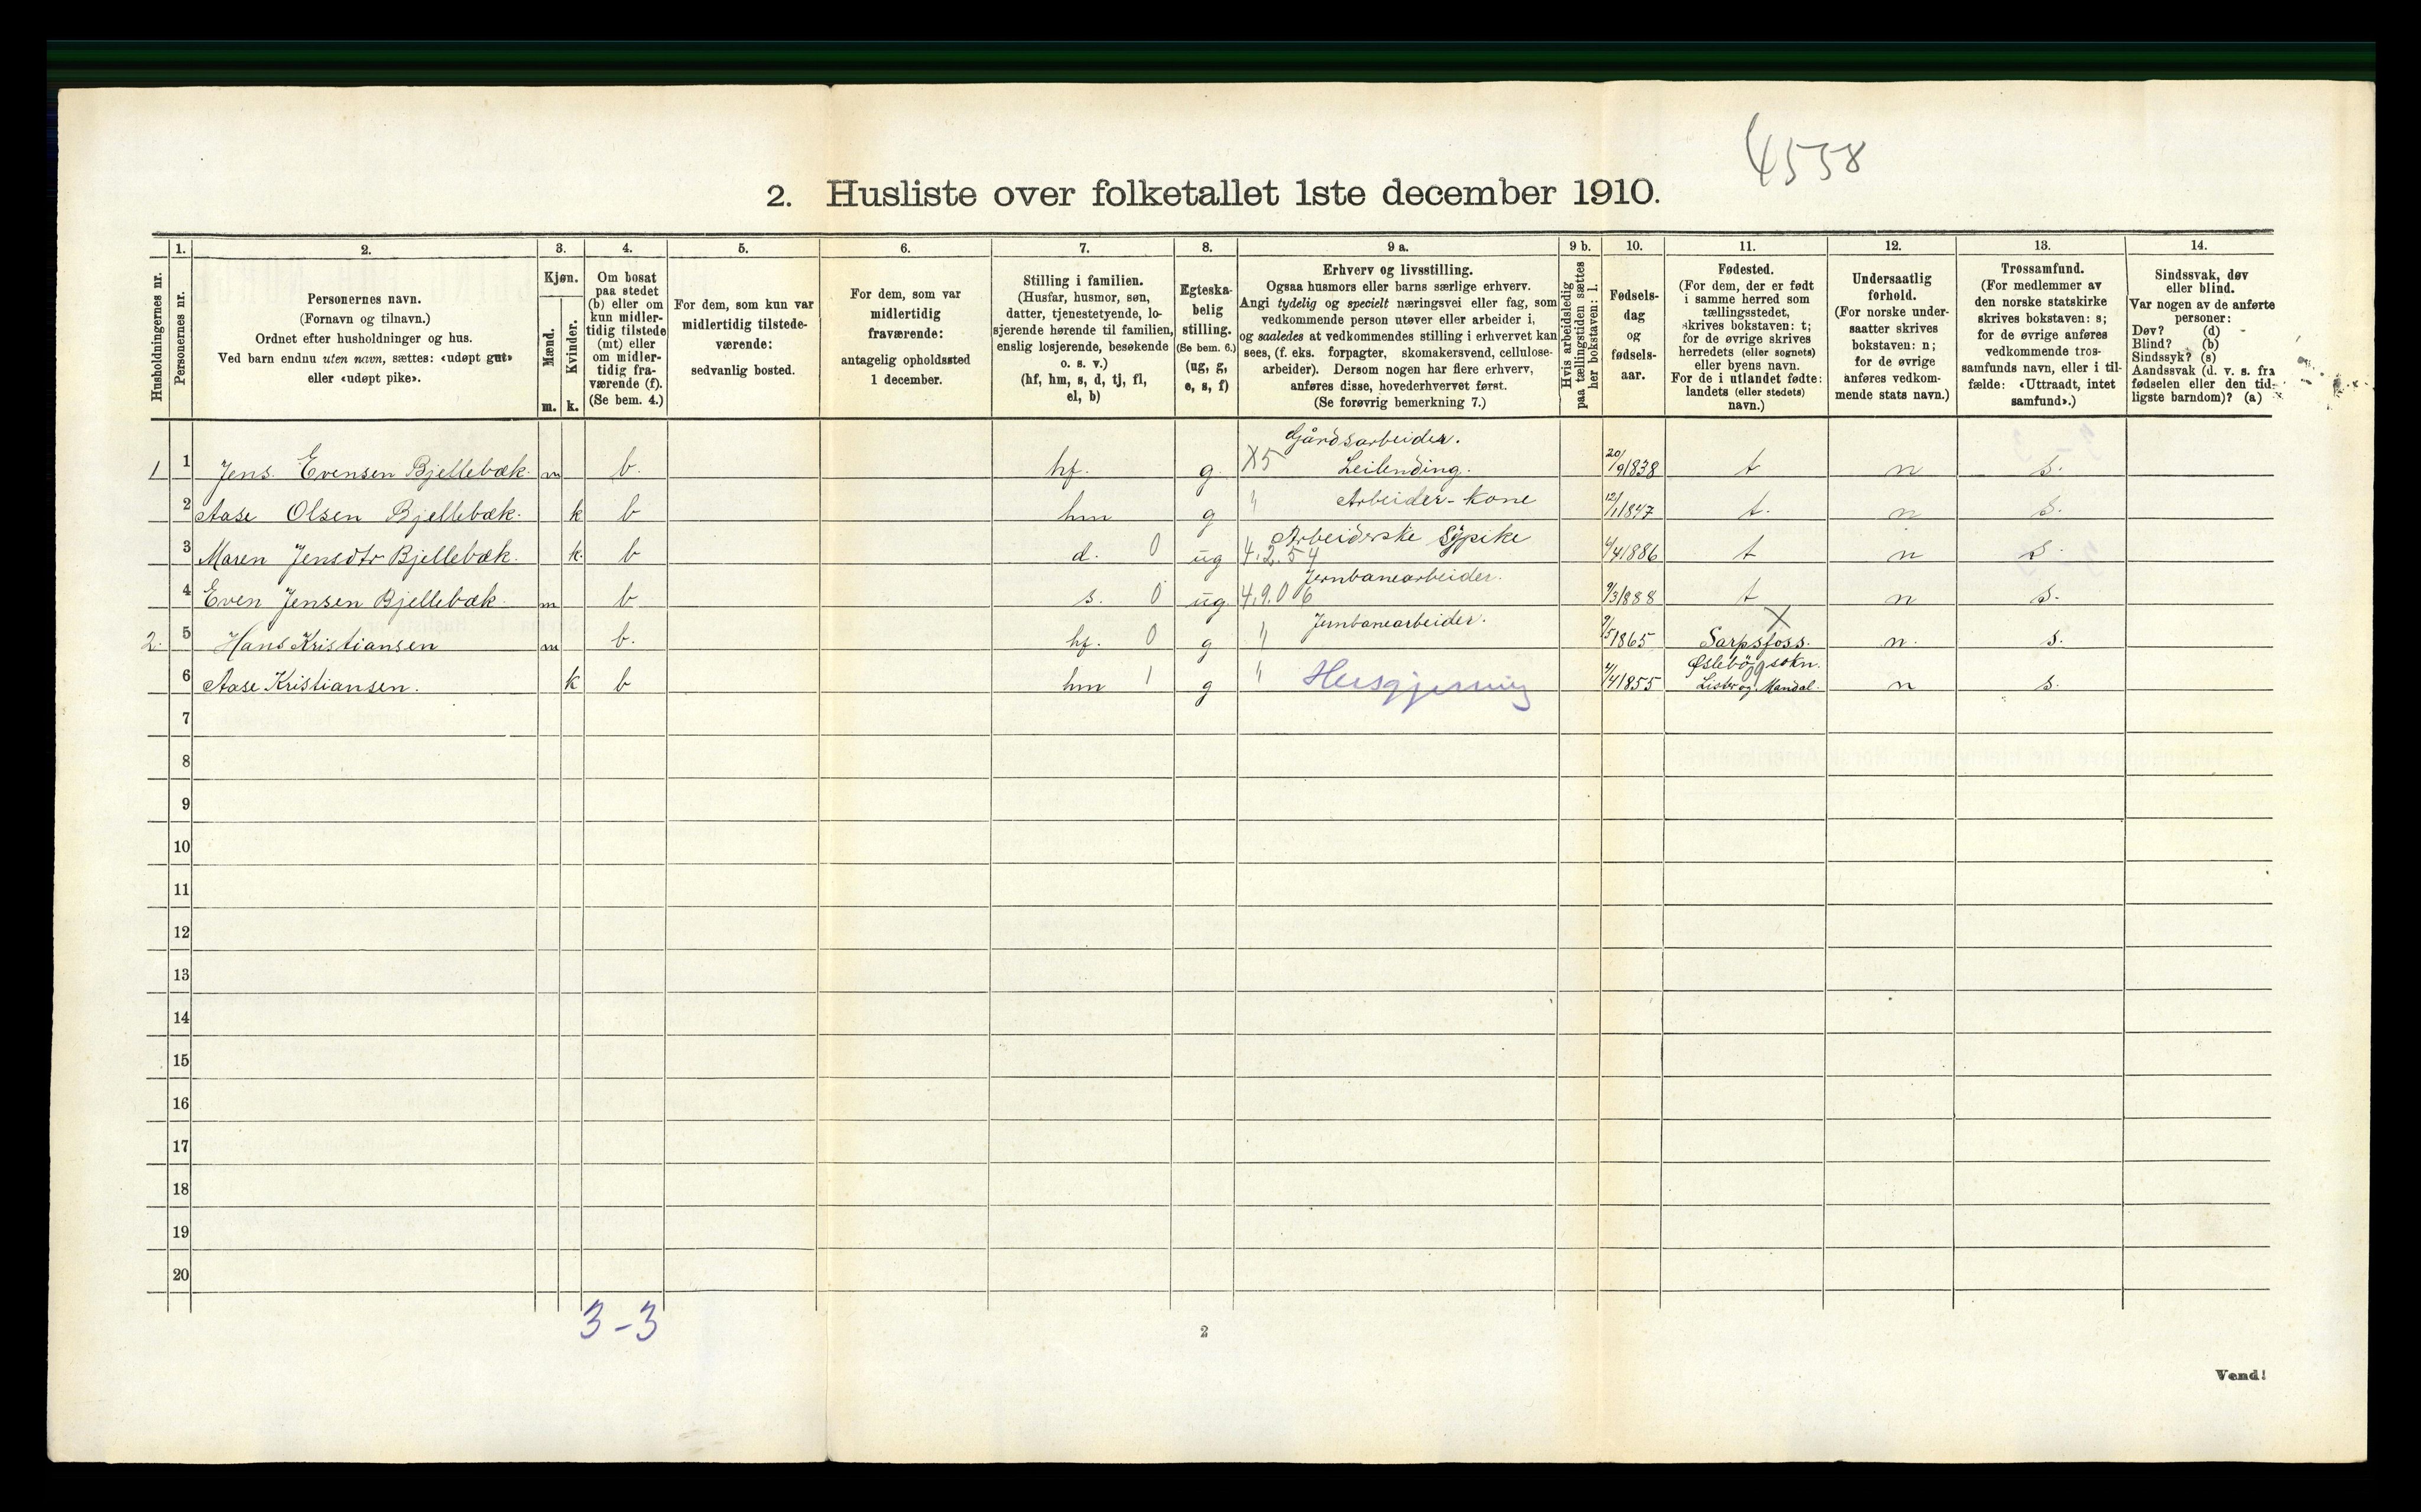 4538
2. Husliste over folketallet 1ste december 1910.
Husholdningernes nr.
1.
Personernes nr.
2.
Personernes navn.
(Fornavn og tilnavn.)
Ordnet efter husholdninger og hus.
Ved barn endnu uten navn, sættes: «udøpt gut»
eller «udøpt pike».
3.
Kjøn.
Mænd.
Kvinder.
m. k.
4.
Om bosat
paa stedet
(b) eller om
kun midler-
tidig tilstede
(mt) eller
om midler-
tidig fra-
værende (f).
(Se bem. 4.)
5.
For dem, som kun var
midlertidig tilstede-
værende:
sedvanlig bosted.
6.
For dem, som var
midlertidig
fraværende:
antagelig opholdssted
1 december.
7.
Stilling i familien.
(Husfar, husmor, søn,
datter, tjenestetyende, lo-
sjerende hørende til familien,
enslig losjerende, besøkende
o. s. v.)
(hf, hm, s, d, tj, fl,
el, b)
8.
Egteska-
belig
stilling.
(Se bem. 6.)
(ug, g,
e, s, f)
9 a.
Erhverv og livsstilling.
Ogsaa husmors eller barns særlige erhverv.
Angi tydelig og specielt næringsvei eller fag, som
vedkommende person utøver eller arbeider i,
og saaledes at vedkommendes stilling i erhvervet kan
sees, (f. eks. forpagter, skomakersvend, cellulose-
arbeider). Dersom nogen har flere erhverv,
anføres disse, hovederhvervet først.
(Se forøvrig bemerkning 7.)
9 b.
Hvis arbeidsledig
paa tællingstiden sættes
her bokstaven: l.
10.
Fødsels-
dag
og
fødsels-
aar.
11.
Fødested.
(For dem, der er født
i samme herred som
tællingsstedet,
skrives bokstaven: t;
for de øvrige skrives
herredets (eller sognets)
eller byens navn.
For de i utlandet fødte:
landets (eller stedets)
navn.)
12.
Undersaatlig
forhold.
(For norske under-
saatter skrives
bokstaven: n;
for de øvrige
anføres vedkom-
mende stats navn.)
13.
Trossamfund.
(For medlemmer av
den norske statskirke
skrives bokstaven: s;
for de øvrige anføres
vedkommende tros-
samfunds navn, eller i til-
fælde: «Uttraadt, intet
samfund».)
14.
Sindssvak, døv
eller blind.
Var nogen av de anførte
personer:
Døv? (d)
Blind? (b)
Sindssyk? (s)
Aandssvak (d. v. s. fra
fødselen eller den tid-
ligste barndom)? (a)
Gårdsarbeider.
1 1 Jens Evensen Bjellebæk. m b. hf. g. X5 Leilending. 20/9 1838 t n s.
2 Aase Olsen Bjellebæk. k b hm g " Arbeider-kone 12/1 1847 t. n s.
Arbeiderske Sypike
3 Maren Jensdtr Bjellebæk. k. b d. 0 ug 4.2.54 4/4 1886 t n s.
Jernbanearbeider.
4 Even Jensen Bjellebæk. m b s. 0 ug. 4.9.06 9/3 1888 t n s.
X
2. 5 Hans Kristiansen m b. hf. 0 g " Jernbanearbeider. 9/5 1865 Sarpsfoss. n. s.
Øslebøg sokn.
6 Aase Kristiansen. k b hm 1 g " Husgjerning 4/4 1855 Lister og Mandal. n s.
7
8
9
10
11
12
13
14
15
16
17
18
19
20
3-3
2
Vend!